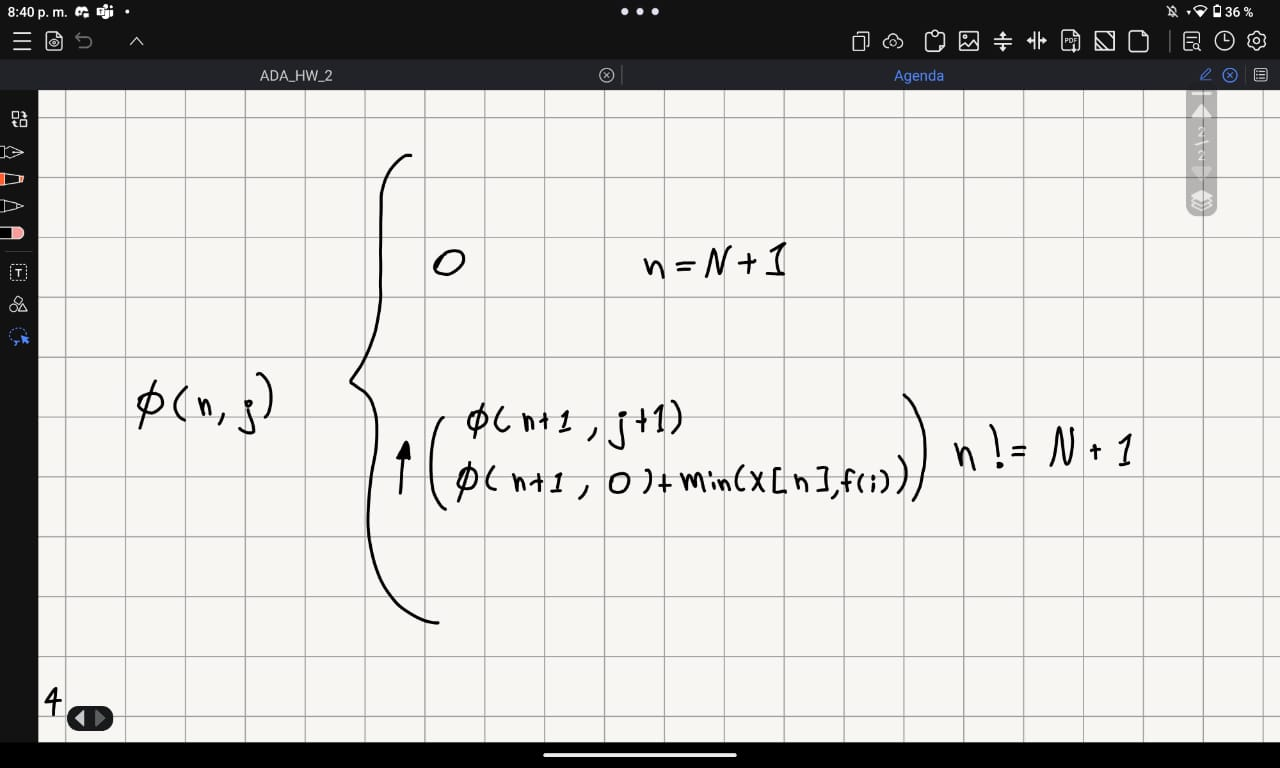 8:40 p. m.
36 %
ADA_HW_2
Agenda
2/2
0 n = N + 1
ϕ(n, j)
↑ ( ϕ(n+1, j+1)
ϕ(n+1, 0) + min(X[n], f(i)) ) n != N + 1
4